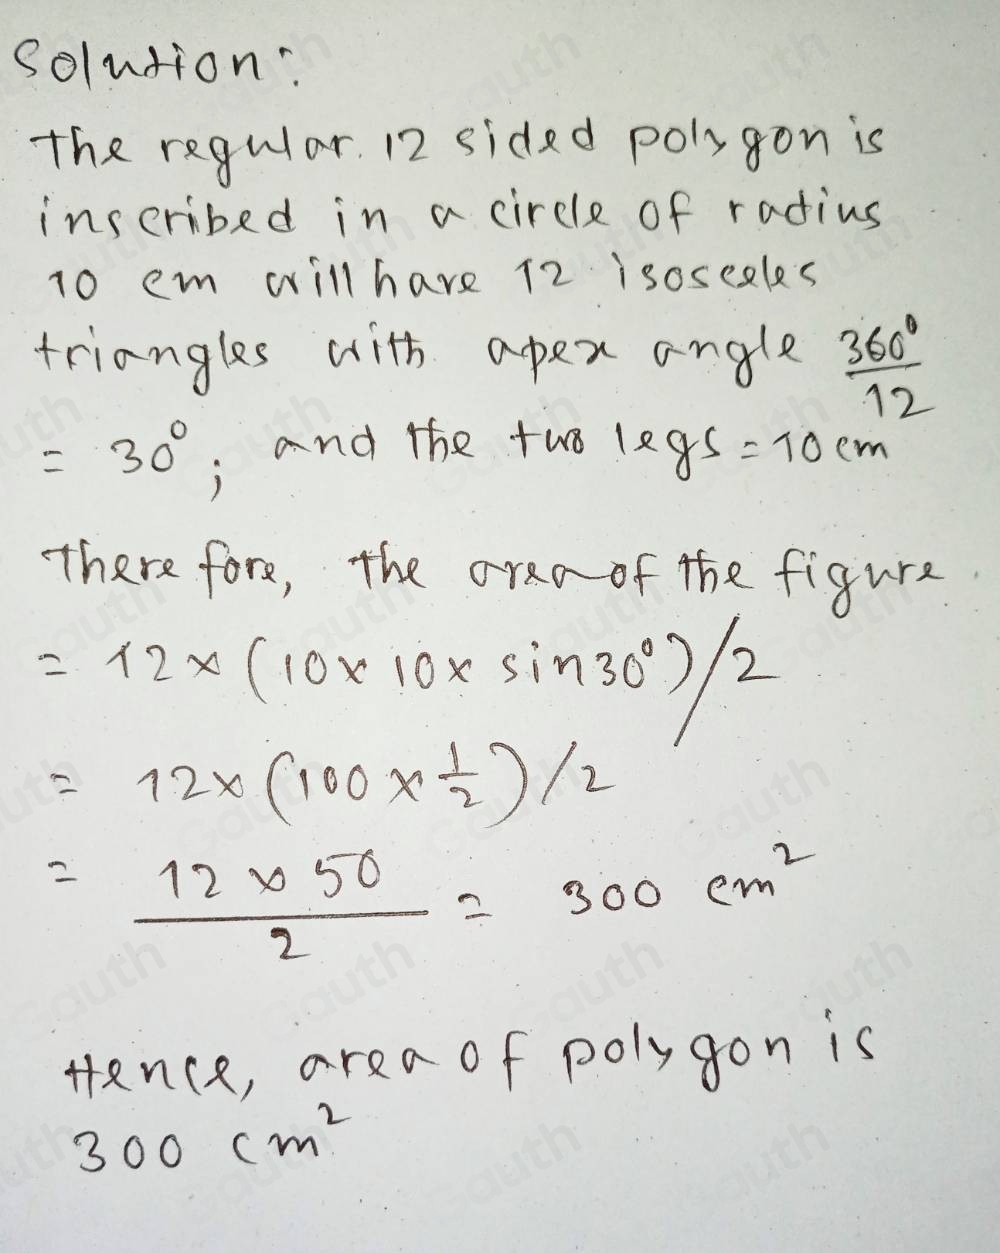 Solution:
The regular 12 sided polygon is
inscribed in a circle of radius
10 cm will have 12 isosceles
triangles with apex angle 360°/12
= 30°; and the two legs = 10 cm
There fore, the area of the figure
= 12 × (10 × 10 × sin 30°)/2
= 12 × (100 × 1/2)/2
= 12 × 50/2 = 300 cm²
Hence, area of polygon is
300 cm²